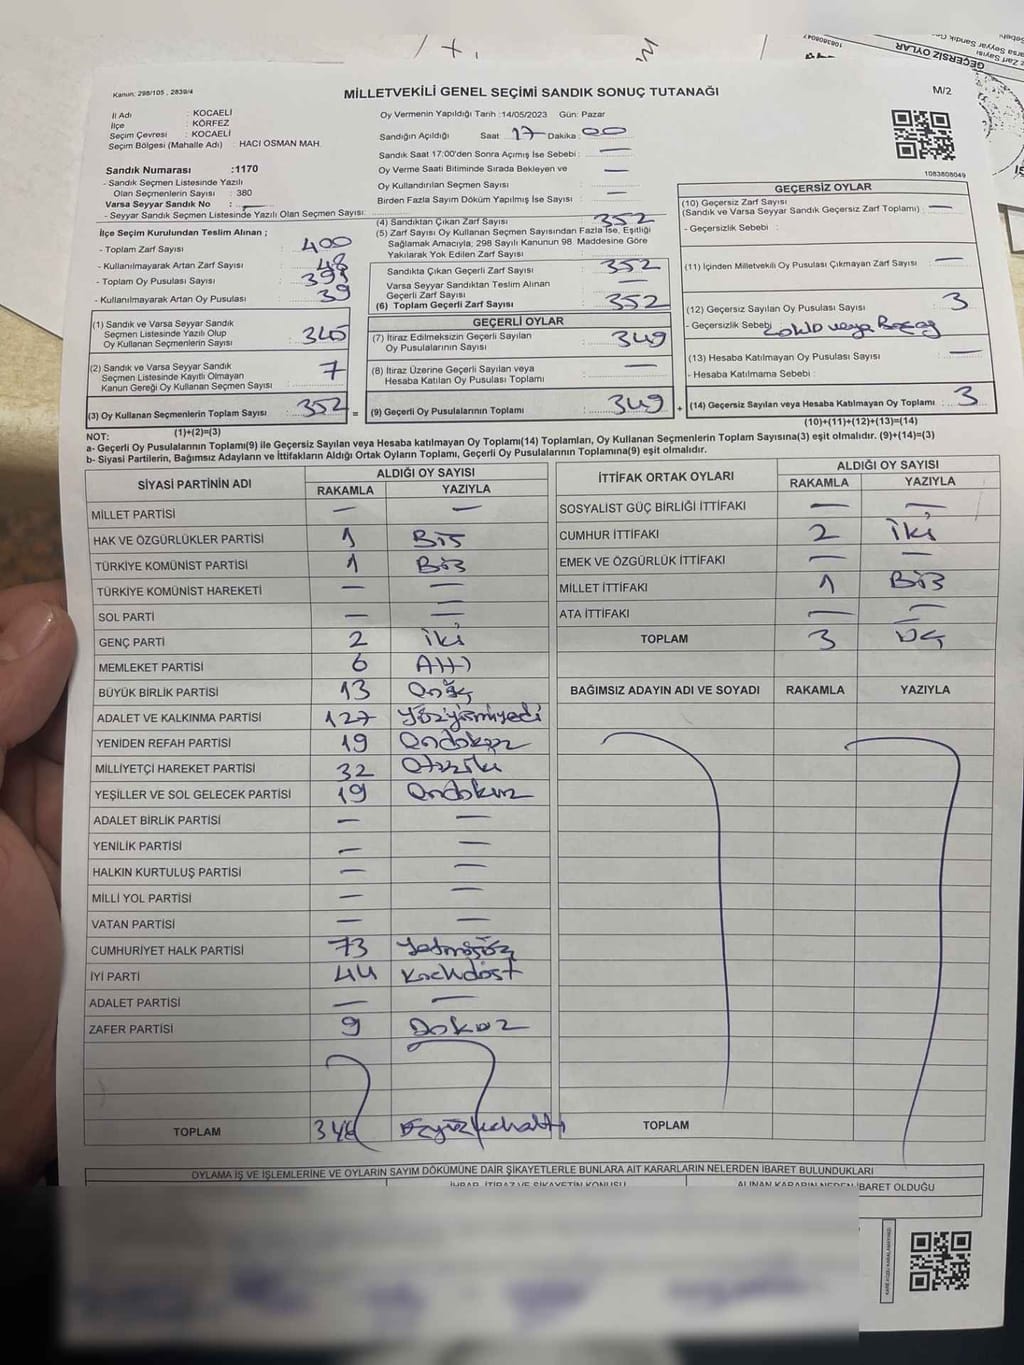 GEÇERSİZ OYLAR
1083808047
Kanun: 298/105 , 2839/4
MİLLETVEKİLİ GENEL SEÇİMİ SANDIK SONUÇ TUTANAĞI
M/2
İl Adı : KOCAELİ
İlçe : KÖRFEZ
Seçim Çevresi : KOCAELİ
Seçim Bölgesi (Mahalle Adı) : HACI OSMAN MAH.
Sandık Numarası :1170
- Sandık Seçmen Listesinde Yazılı
Olan Seçmenlerin Sayısı : 380
Varsa Seyyar Sandık No : —
- Seyyar Sandık Seçmen Listesinde Yazılı Olan Seçmen Sayısı:
Oy Vermenin Yapıldığı Tarih :14/05/2023 Gün: Pazar
Sandığın Açıldığı Saat: 17 Dakika: 00
Sandık Saat 17:00'den Sonra Açımış İse Sebebi : —
Oy Verme Saati Bitiminde Sırada Bekleyen ve
Oy Kullandırılan Seçmen Sayısı : —
Birden Fazla Sayım Döküm Yapılmış İse Sayısı : —
1083808049
İlçe Seçim Kurulundan Teslim Alınan ;
- Toplam Zarf Sayısı : 400
- Kullanılmayarak Artan Zarf Sayısı : 48
- Toplam Oy Pusulası Sayısı : 391
- Kullanılmayarak Artan Oy Pusulası : 39
(1) Sandık ve Varsa Seyyar Sandık
Seçmen Listesinde Yazılı Olup
Oy Kullanan Seçmenlerin Sayısı : 345
(2) Sandık ve Varsa Seyyar Sandık
Seçmen Listesinde Kayıtlı Olmayan
Kanun Gereği Oy Kullanan Seçmen Sayısı : 7
(3) Oy Kullanan Seçmenlerin Toplam Sayısı : 352 =
(1)+(2)=(3)
(4) Sandıktan Çıkan Zarf Sayısı : 352
(5) Zarf Sayısı Oy Kullanan Seçmen Sayısından Fazla İse, Eşitliği
Sağlamak Amacıyla; 298 Sayılı Kanunun 98. Maddesine Göre
Yakılarak Yok Edilen Zarf Sayısı :
Sandıkta Çıkan Geçerli Zarf Sayısı : 352
Varsa Seyyar Sandıktan Teslim Alınan
Geçerli Zarf Sayısı : —
(6) Toplam Geçerli Zarf Sayısı : 352
GEÇERLİ OYLAR
(7) İtiraz Edilmeksizin Geçerli Sayılan
Oy Pusulalarının Sayısı : 349
(8) İtiraz Üzerine Geçerli Sayılan veya
Hesaba Katılan Oy Pusulası Toplamı : —
(9) Geçerli Oy Pusulalarının Toplamı : 349 +
GEÇERSİZ OYLAR
(10) Geçersiz Zarf Sayısı
(Sandık ve Varsa Seyyar Sandık Geçersiz Zarf Toplamı) : —
- Geçersizlik Sebebi :
(11) İçinden Milletvekili Oy Pusulası Çıkmayan Zarf Sayısı : —
(12) Geçersiz Sayılan Oy Pusulası Sayısı : 3
- Geçersizlik Sebebi : veya
(13) Hesaba Katılmayan Oy Pusulası Sayısı : —
- Hesaba Katılmama Sebebi :
(14) Geçersiz Sayılan veya Hesaba Katılmayan Oy Toplamı : 3
(10)+(11)+(12)+(13)=(14)
NOT:
a- Geçerli Oy Pusulalarının Toplamı(9) ile Geçersiz Sayılan veya Hesaba katılmayan Oy Toplamı(14) Toplamları, Oy Kullanan Seçmenlerin Toplam Sayısına(3) eşit olmalıdır. (9)+(14)=(3)
b- Siyasi Partilerin, Bağımsız Adayların ve İttifakların Aldığı Ortak Oyların Toplamı, Geçerli Oy Pusulalarının Toplamına(9) eşit olmalıdır.
SİYASİ PARTİNİN ADI
ALDIĞI OY SAYISI
RAKAMLA YAZIYLA
MİLLET PARTİSİ — —
HAK VE ÖZGÜRLÜKLER PARTİSİ 1 Bir
TÜRKİYE KOMÜNİST PARTİSİ 1 Bir
TÜRKİYE KOMÜNİST HAREKETİ — —
SOL PARTİ — —
GENÇ PARTİ 2 iki
MEMLEKET PARTİSİ 6 Altı
BÜYÜK BİRLİK PARTİSİ 13 Onüç
ADALET VE KALKINMA PARTİSİ 127 Yüzyirmiyedi
YENİDEN REFAH PARTİSİ 19 Ondokuz
MİLLİYETÇİ HAREKET PARTİSİ 32 Otuziki
YEŞİLLER VE SOL GELECEK PARTİSİ 19 Ondokuz
ADALET BİRLİK PARTİSİ — —
YENİLİK PARTİSİ — —
HALKIN KURTULUŞ PARTİSİ — —
MİLLİ YOL PARTİSİ — —
VATAN PARTİSİ — —
CUMHURİYET HALK PARTİSİ 73 Yetmişüç
İYİ PARTİ 44 Kırkdört
ADALET PARTİSİ — —
ZAFER PARTİSİ 9 Dokuz
TOPLAM 346 Üçyüzkırkaltı
İTTİFAK ORTAK OYLARI
ALDIĞI OY SAYISI
RAKAMLA YAZIYLA
SOSYALİST GÜÇ BİRLİĞİ İTTİFAKI — —
CUMHUR İTTİFAKI 2 İki
EMEK VE ÖZGÜRLÜK İTTİFAKI — —
MİLLET İTTİFAKI 1 Bir
ATA İTTİFAKI — —
TOPLAM 3 Üç
BAĞIMSIZ ADAYIN ADI VE SOYADI RAKAMLA YAZIYLA
TOPLAM
OYLAMA İŞ VE İŞLEMLERİNE VE OYLARIN SAYIM DÖKÜMÜNE DAİR ŞİKAYETLERLE BUNLARA AİT KARARLARIN NELERDEN İBARET BULUNDUKLARI
İHBAR, İTİRAZ VE ŞİKAYETİN KONUSU
ALINAN KARARIN NEDEN İBARET OLDUĞU